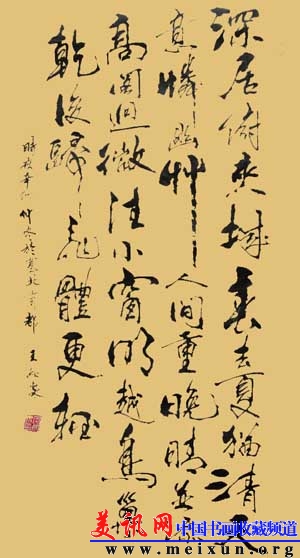 深居俯夾城春去夏猶清天
意憐幽艸人间重晚晴並添
高阁迥微注小窗明越鳥巢
乾後歸飛體更輕
仲冬於 京都 王
美讯网 中国书画收藏频道
www.meixun.org